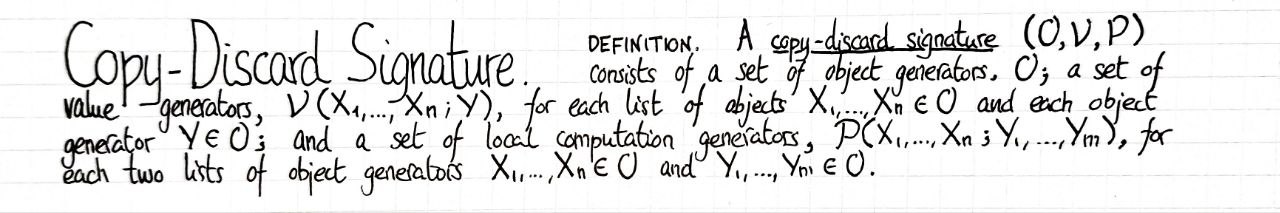 Copy-Discard Signature. DEFINITION. A copy-discard signature (O,V,P)
consists of a set of object generators, O; a set of
value generators, V(X₁,...,Xn;Y), for each list of objects X₁,...,Xn ∈ O and each object
generator Y ∈ O; and a set of local computation generators, P(X₁,...,Xn;Y₁,...,Ym), for
each two lists of object generators X₁,...,Xn ∈ O and Y₁,...,Ym ∈ O.